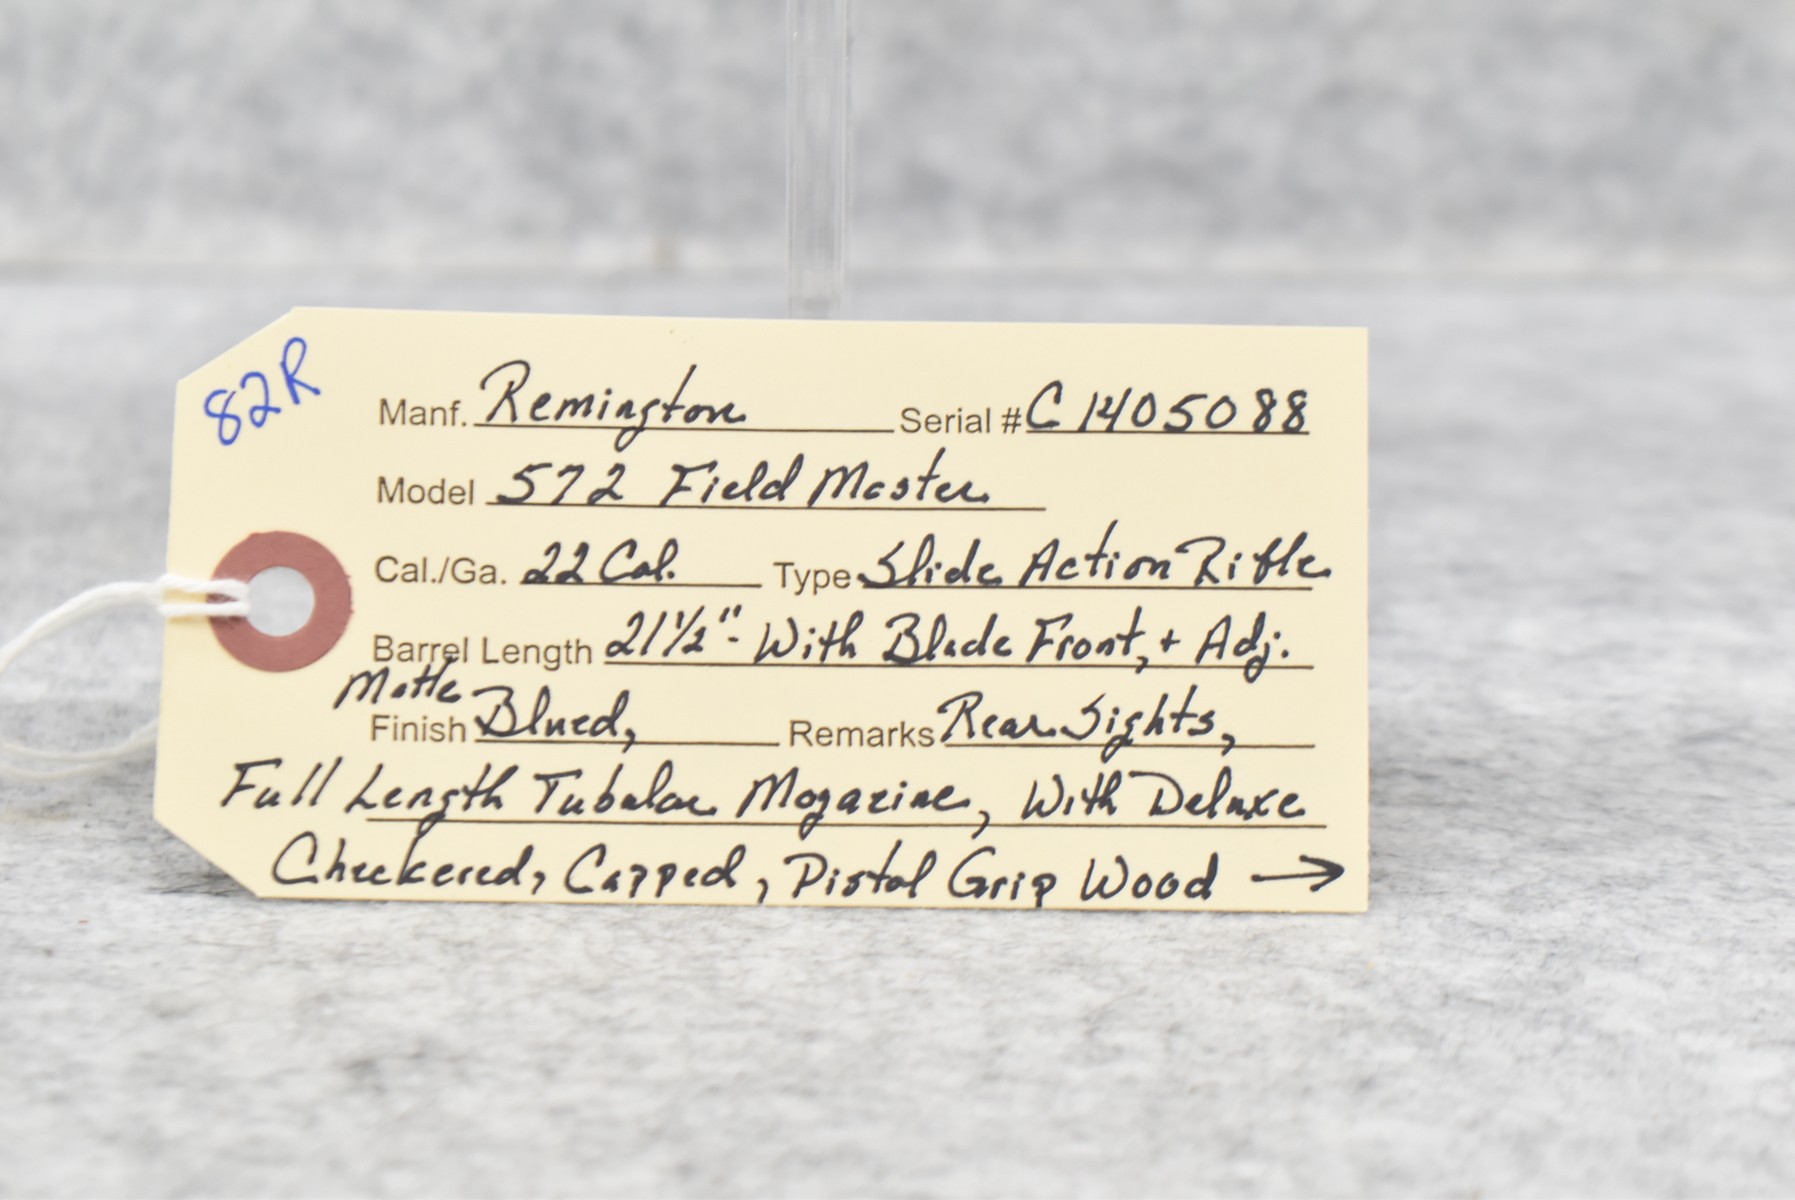 82R
Manf. Remington Serial # C1405088
Model 572 Field Master
Cal./Ga. 22 Cal. Type Slide Action Rifle
Barrel Length 21½"- With Blade Front, + Adj.
Matte
Finish Blued, Remarks Rear Sights,
Full Length Tubular Magazine, With Deluxe
Checkered, Capped, Pistol Grip Wood →